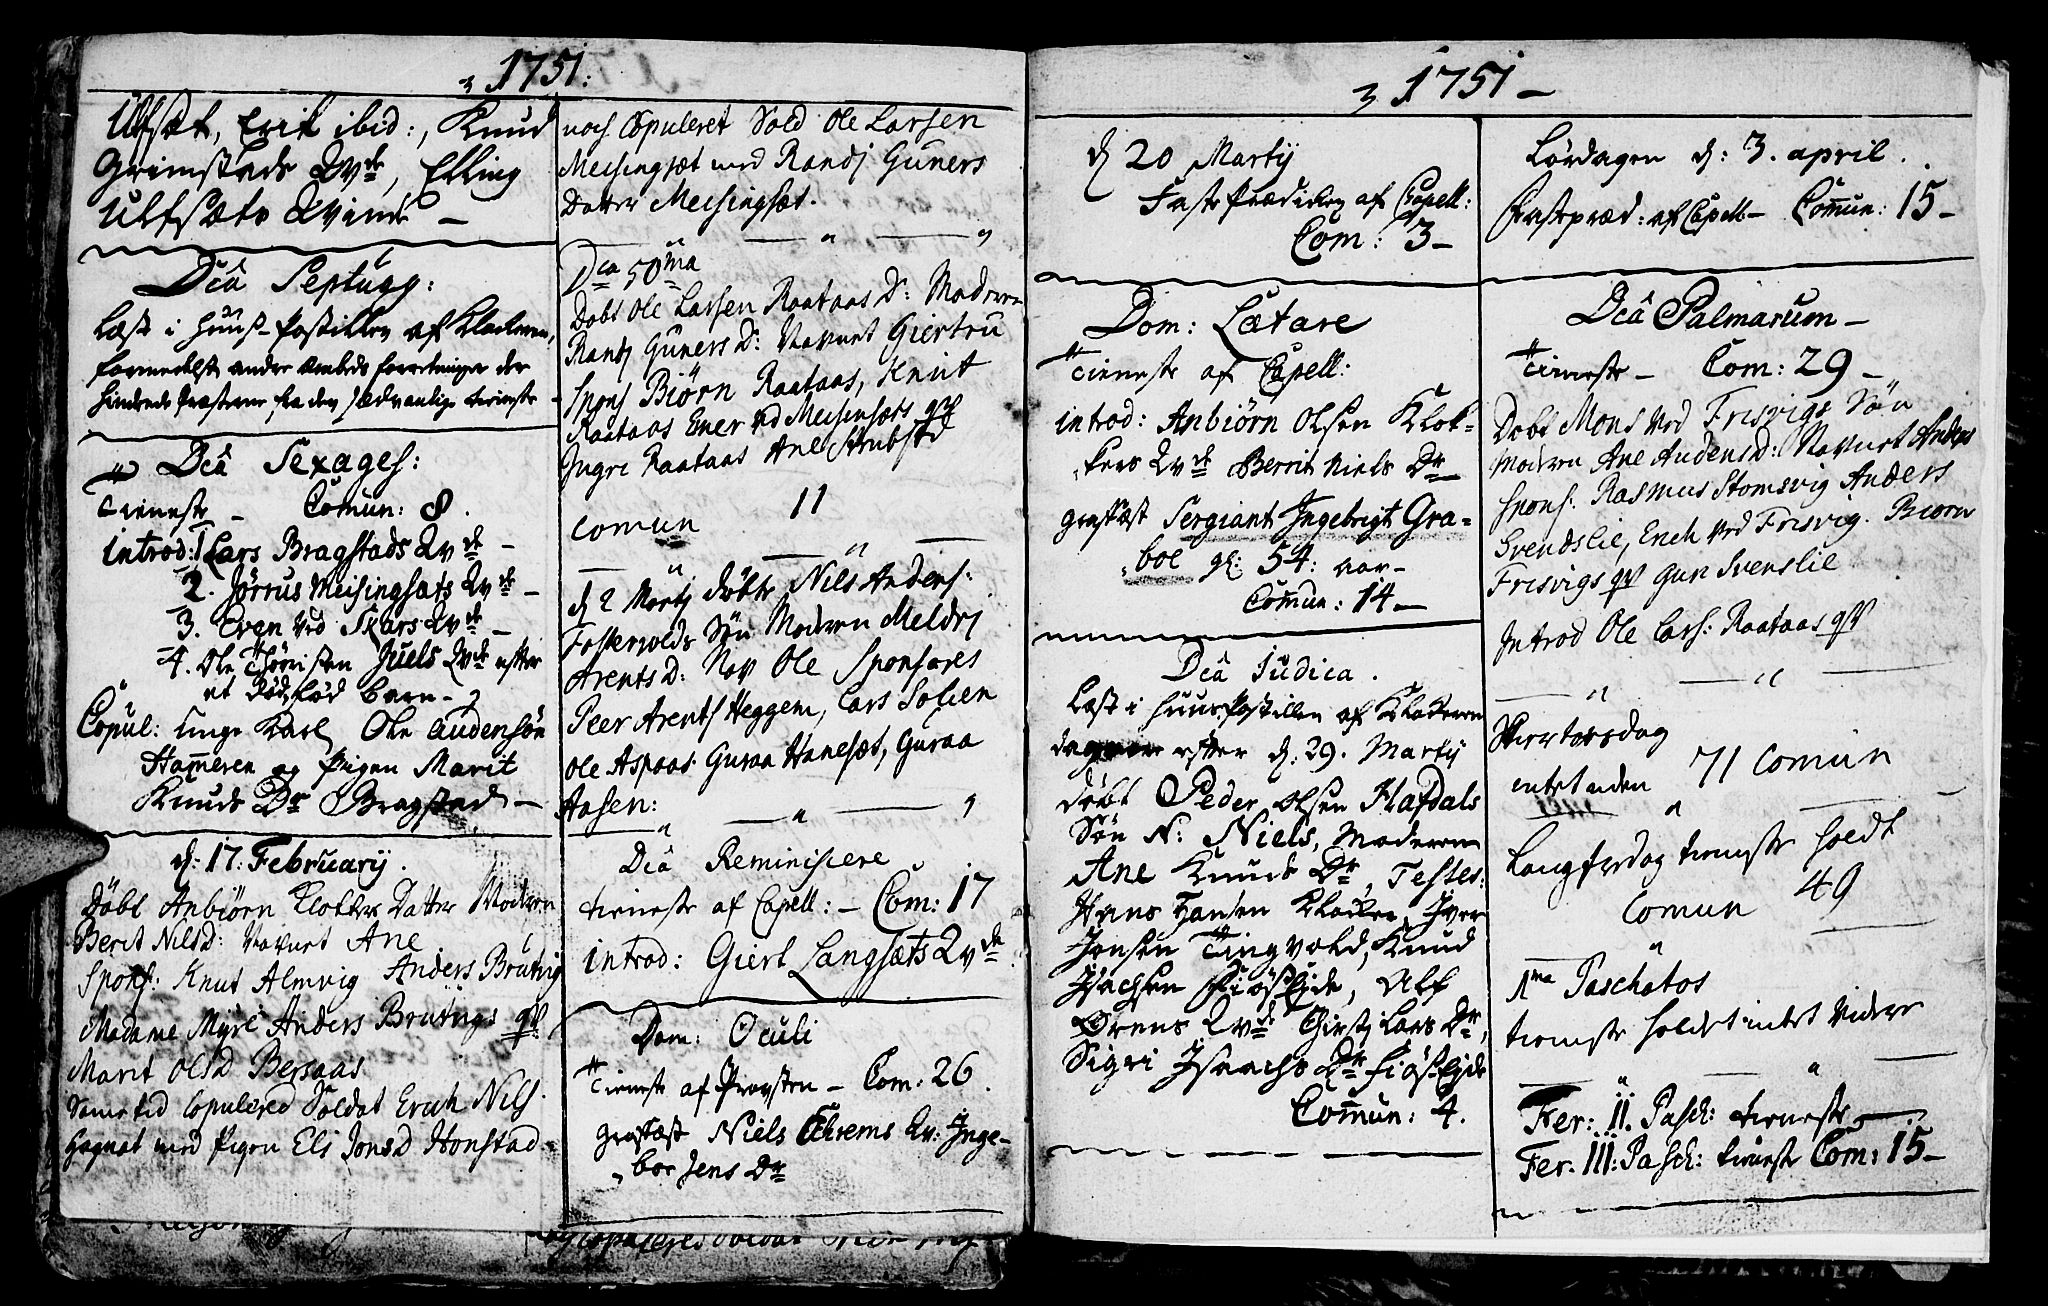 1751:
Ulfsæt, Erik ibid:, Knud
Grimstads Qvde, Elling
Ulfsæts Qvinde –
Dca Septuag:
Læst i Huus-Postillen af Klockeren,
formedelst andre Embeds forretninger der
hindrede Præsterne fra den sædvanlige tieneste –
Dca Sexages:
Tieneste – Comun: 8.
introd: 1 Lars Bragstads Qvde –
2. Jørrus Meisingsæts Qvde –
3. Even ved Skars Qvde –
4. Ole Thörrisen Juels Qvde efter
et dödföd barn –
Copul: unge Karl Ole Audensön
Hammeren og Pigen Marit
Knuds Dr Bragstad –
d: 17: February.
Döbt Anbiörn Klokkers Datter Moderen
Berit Nilsd: Navnet Ane
Spons: Knut Almvig Anders Brutvig
Madame Myre Anders Brutvigs qv
Marit Olsd Bersaas
Samme tid Copulered Soldat Erich Nils:
Hegnat med Pigen Els Jonsd Honstad
noch Copuleret Sold Ole Larsen
Meisingsæt med Randj Guners
Datter Meisingsæt.
Dca 50ma
Döbt Ole Larsen Raataas D: Moderen
Randj Guners D: Navnet Giertru
Spons Biörn Raataas, Knut
Raataas Ener ved Meisensæts qv
Ingre Raataas Ane Strubstd
comun 11
d 2 Martj döbte Nils Anders:
Fosservolds Sön Moderen Meldrj
Arents D: Nav Ole Sponsores
Peer Arents Heggem, Lars Solien
Ole Aspaas Guraa Hanesæt, Guraa
Aasen:
Dca Reminisiere
tieneste af Capell: – Com: 17
introd: Giert Langsæts Qvde
Dom: Oculi
Tieneste af Provsten – Com: 26.
græsfæst Niels Ehrems Qv: Inge-
bor Jens Dr
1751 –
d 20 Martij
Faste Prædiken af Capell:
Com: 3 –
Dom: Lætare
Tieneste af Capell:
introd: Anbiörn Olsen Klok-
kers Qvde Berrit Niels Dr
græsfæst Sergiant Ingebrigt Gra-
boe gl: 54: aar –
Commun: 14 –
Dca Iudica.
Læst i Huus Postillen af Klockeren
dagen efter d: 29. Martij
döbt Peder Olsen Flafdals
Sön N: Niels, Moderen
Ane Knuds Dr, Testes:
Hans Hansen Klocker, Iver
Jonsen Tingvold, Knud
Isachsen Fiösejde, Ulf
Ørens Qvde Girstj Lars Dr,
Sigri Isaachs Dr Fiösejde
Commun: 4.
Lørdagen d: 3. april.
Fastepræd: af Capell – Commun: 15 –
Dca Palmarum –
Tieneste – Com: 29 –
Döbt Mons ved Frisvigs Sön
Moderen Ane Audensd: Navnet Anders
Spons: Rasmus Stomsvig Anders
Svendslie, Erich ved Frisvig. Biörn
Frisvigs qv Gun Svenslie
Introd Ole Lars: Raataas qv
Skiertorsdag
intet uden 71 Comun
Langfredag tieneste holdt
Comun 49
1ma Paschatos
tieneste holdet intet videre
Fer: II. Pasch: tieneste
Fer. III: Pasch: tieneste Com: 15 –